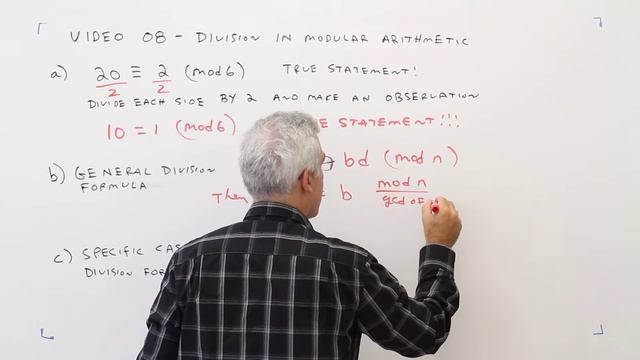 VIDEO 08 - DIVISION IN MODULAR ARITHMETIC
a) 20/2 ≡ 2/2 (mod 6) TRUE STATEMENT!
DIVIDE EACH SIDE BY 2 AND MAKE AN OBSERVATION
10 = 1 (mod 6) STATEMENT!!!
b) GENERAL DIVISION FORMULA
bd (mod n)
Then = b mod n / gcd of
c) SPECIFIC
DIVISION